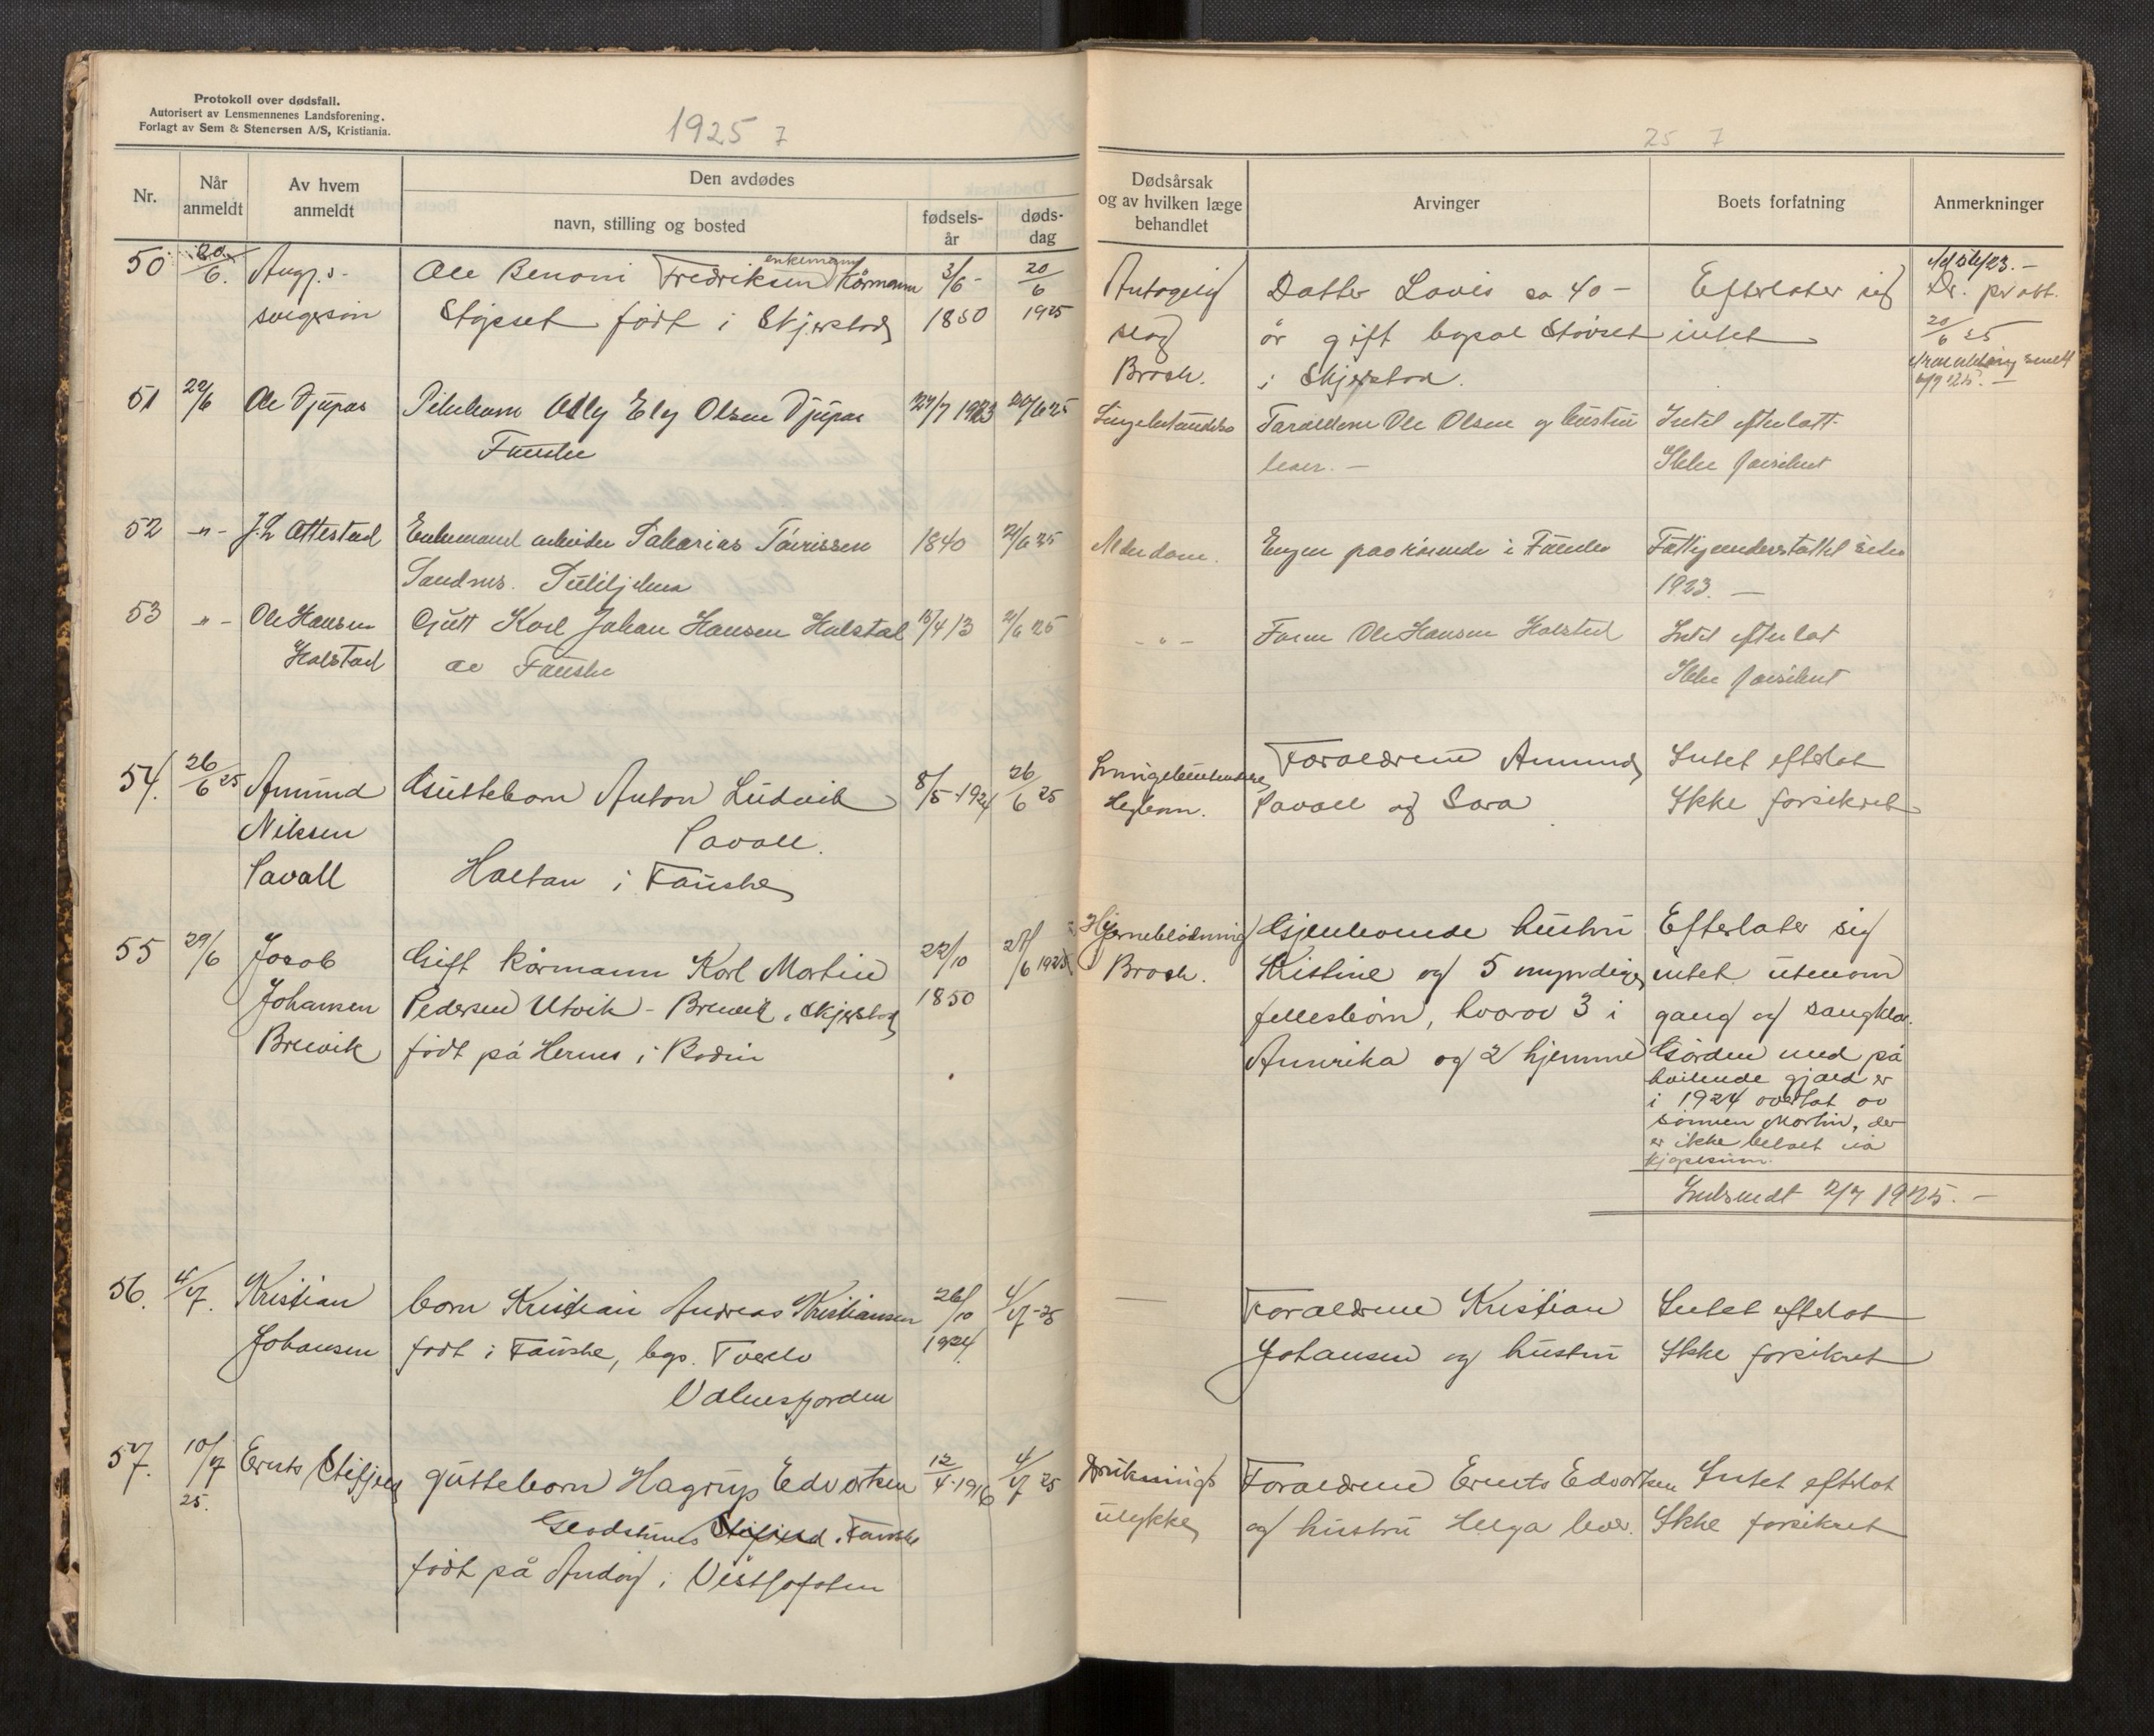 Protokoll over dødsfall.
Autorisert av Lensmennenes Landsforening.
Forlagt av Sem & Stenersen A/S, Kristiania.
1925 7
25 7
Nr.
Når anmeldt
Av hvem anmeldt
Den avdødes
navn, stilling og bosted
fødsels- år
døds- dag
Dødsårsak og av hvilken læge behandlet
Arvinger
Boets forfatning
Anmerkninger
50 20/6.
svigersøn
enkemann
Ole Benoni Fredriksen Kårmann
født i Skjerstad
3/6 - 1850
20/6 1925
slag
Brock.
Datter Lovis ca 40 -
år gift bopæl Støvset
i Skjerstad.
Efterlater sig
intet
Dr. pr att.
20/6 25
51 22/6 Ole Djupos
Olsen Djupos
Fauske
20/6 25
Foreldrene Ole Olsen og hustru
lever. -
Intet efterlatt
Ikke forsikret
52 -"- Attestad
Enkemand arbeider
Sandnes. Sulitjelma
1840
21/6 25
Alderdom.
Ingen paarørende i Fauske
Fattigunderstøttet siden
1923. -
53 -"- Ole Hansen
Halstad
Gutt Karl Johan Hansen Halstad
av Fauske
15/4 13
21/6 25
- " -
Faren Ole Hansen Halstad
Intet efterlat
Ikke forsikret
54. 26/6 25 Amund
Nilsen
Savall
Guttebarn Anton Ludvik
Savall.
i Fauske
8/5-1924
26/6 25
Foreldrene Amund
Savall og Sara
Intet efterlot
Ikke forsikret
55 29/6 Jacob
Johansen
Breivik
Gift kårmann Karl Martin
Pedersen Utvik - Breivik, Skjerstad
født på Hernes i Bodin
22/10
1850
27/6 1925
Hjerneblødning
Brock.
Gjenlevende hustru
Kristine og 5 myndige
fellesbørn, hvorav 3 i
Amerika og 2 hjemme
Efterlater sig
intet utenom
gang og sangklær.
Gården med på
hvilende gjæld er
i 1924 overlat av
sønnen Martin, der
er ikke betalt
kjøpesum.
Innsendt 2/7 1925. -
56. 4/7. Kristian
Johansen
barn Kristian Andreas Kristiansen
født i Fauske, bop. Tverlo
Valnesfjorden
26/10
1924
4/7-25
—
Foreldrene Kristian
Johansen og hustru
Intet efterlot
Ikke forsikret
57. 10/7 25. Ernts
gutteborn Hagrup Edvartsen
Fauske
født på Andøy i
12/4-1916
4/7 25
Druknings
ulykke
Foreldrene Ernts Edvartsen
og hustru Helga lever.
Intet efterlot
Ikke forsikret